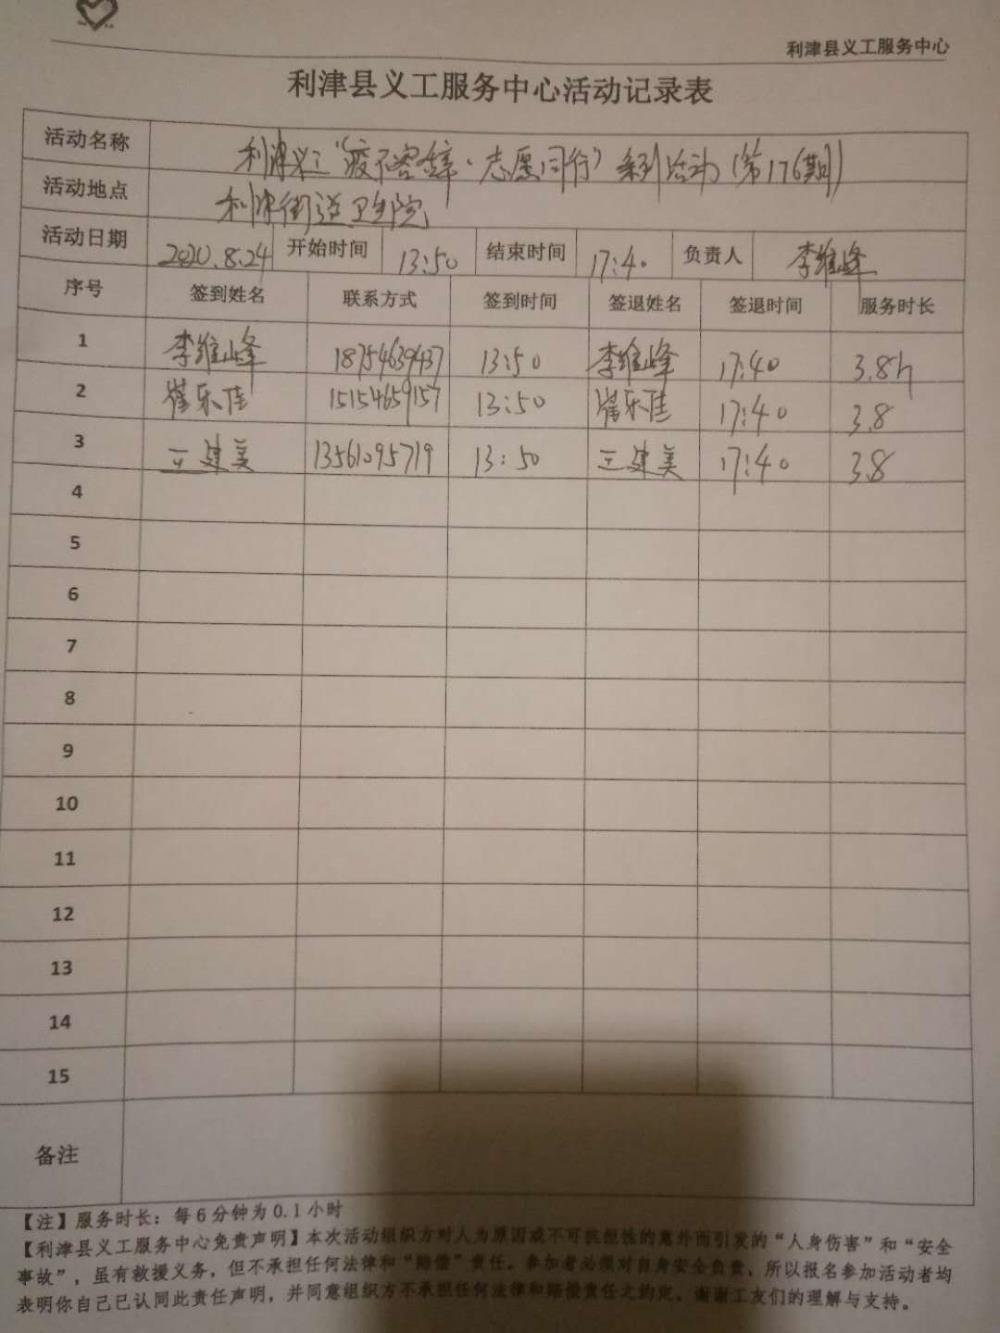 利津县义工服务中心
利津县义工服务中心活动记录表
活动名称 利津义工“疫不容辞·志愿同行”系列活动(第176期)
活动地点 利津街道卫生院
活动日期 2020.8.24 开始时间 13:50 结束时间 17:40 负责人 李维峰
序号 签到姓名 联系方式 签到时间 签退姓名 签退时间 服务时长
1 李维峰 18754639437 13:50 李维峰 17:40 3.8h
2 崔乐佳 15154659157 13:50 崔乐佳 17:40 3.8
3 王建美 13561095719 13:50 王建美 17:40 3.8
4
5
6
7
8
9
10
11
12
13
14
15
备注
【注】服务时长：每6分钟为0.1小时
【利津县义工服务中心免责声明】本次活动组织方对人为原因或不可抗拒性的意外而引发的“人身伤害”和“安全
事故”，虽有救援义务，但不承担任何法律和“赔偿”责任。参加者必须对自身安全负责，所以报名参加活动者均
表明你自己已认同此责任声明，并同意组织方不承担任何法律和赔偿责任之约定。谢谢工友们的理解与支持。